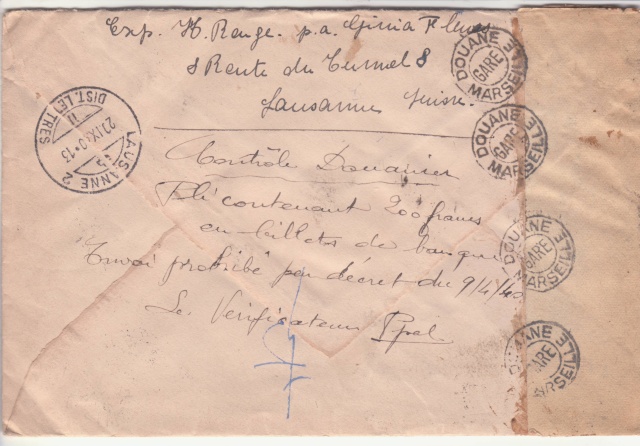 Exp. H. Renge. p.a. Giria
8 Route du Tunnel 8
Lausanne Suisse.
DOUANE GARE MARSEILLE
DOUANE GARE MARSEILLE
DOUANE GARE MARSEILLE
DOUANE GARE MARSEILLE
LAUSANNE 2
DIST. LETTRES
Contrôle Douanier
Pli contenant 200 francs
en billets de banque
Envoi prohibé par décret du 9/4/40
Le Vérificateur Ppal